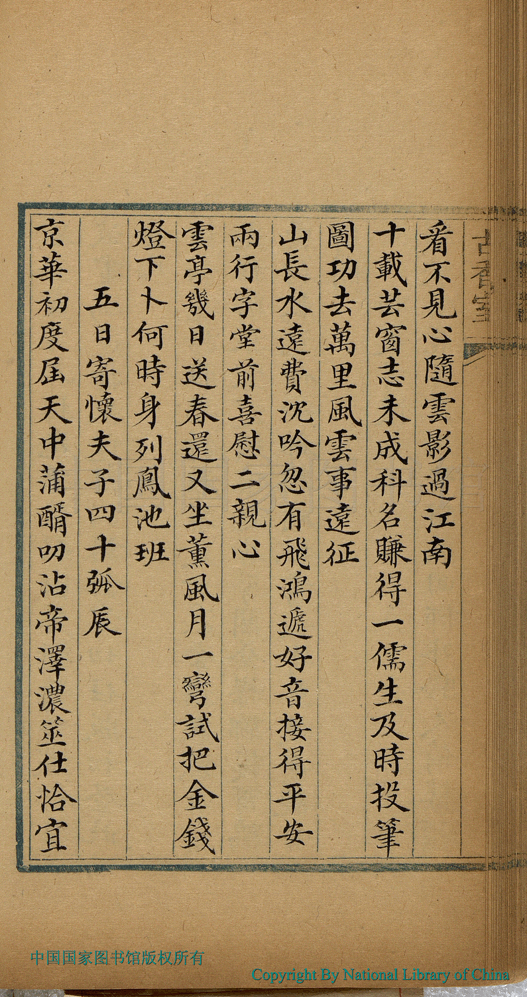 古香室
看不見心隨雲影過江南
十載芸窗志未成科名賺得一儒生及時投筆
圖功去萬里風雲事遠征
山長水遠費沈吟忽有飛鴻遞好音接得平安
兩行字堂前喜慰二親心
雲亭幾日送春還又坐薰風月一彎試把金錢
燈下卜何時身列鳳池班
五日寄懷夫子四十弧辰
京華初度屆天中蒲醑叨沾帝澤濃筮仕恰宜
中国国家图书馆版权所有
Copyright By National Library of China